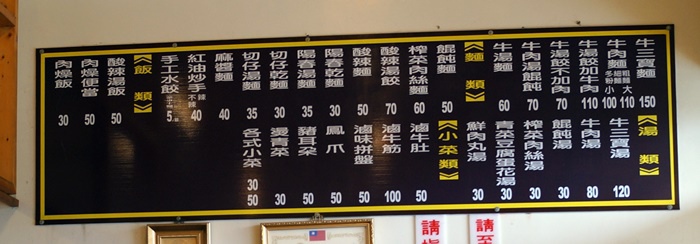 牛三寶麵 150
牛肉麵 粗麵 細麵 冬粉 大 110 小 100
牛湯餃加牛肉 110
牛湯餃不加肉 70
牛肉湯餛飩 70
牛湯麵 60
《麵類》
餛飩麵 50
榨菜肉絲麵 60
酸辣湯餃 70
酸辣麵 50
陽春乾麵 30
陽春湯麵 35
切仔乾麵 30
切仔湯麵 35
麻醬麵 40
紅油炒手 辣 不辣 40
手工水餃 5
《飯類》
酸辣湯飯 50
肉燥便當 50
肉燥飯 30
《湯類》
牛三寶湯 120
牛肉湯 80
餛飩湯 30
榨菜肉絲湯 30
青菜豆腐蛋花湯 30
鮮肉丸湯 30
《小菜類》
滷牛肚 50
滷牛筋 100
滷味拼盤 50
鳳爪 50
豬耳朵 50
燙青菜 30
各式小菜 30 50
請至
請